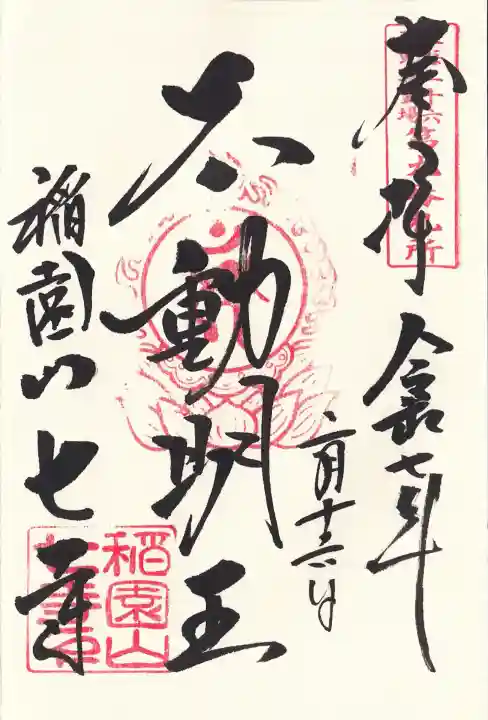 奉拝
令和七年
月十六日
不動明王
稲園山
七寺
稲園山